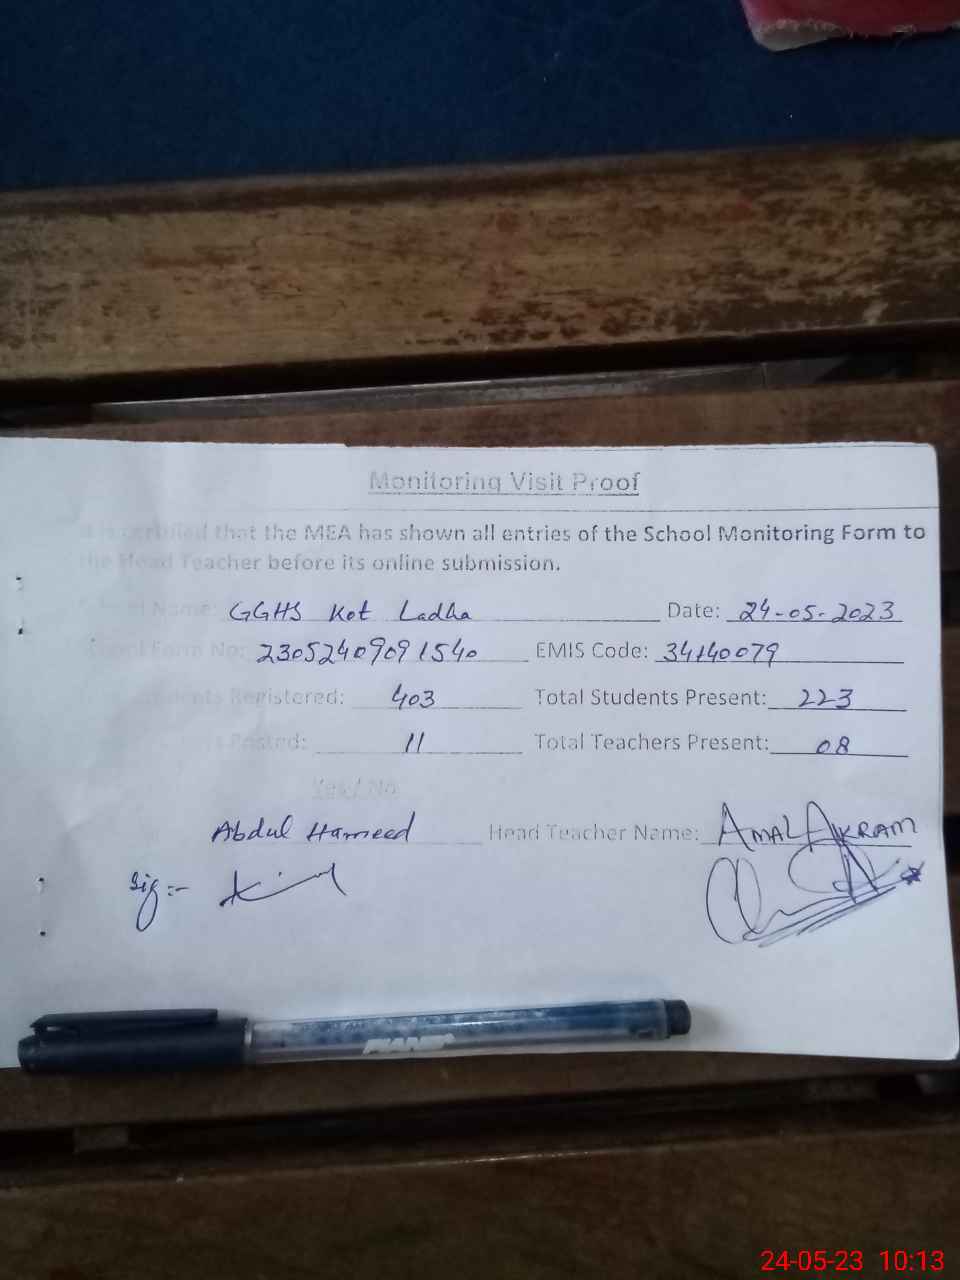 Monitoring Visit Proof
It is certified that the MEA has shown all entries of the School Monitoring Form to
the Head Teacher before its online submission.
School Name: GGHS Kot Ladha Date: 24-05-2023
School Form No: 23052409091540 EMIS Code: 34140079
Students Registered: 403 Total Students Present: 223
Posted: 11 Total Teachers Present: 08
Yes/No
Abdul Hameed Head Teacher Name: AMAL AKRAM
Sig:-
24-05-23 10:13